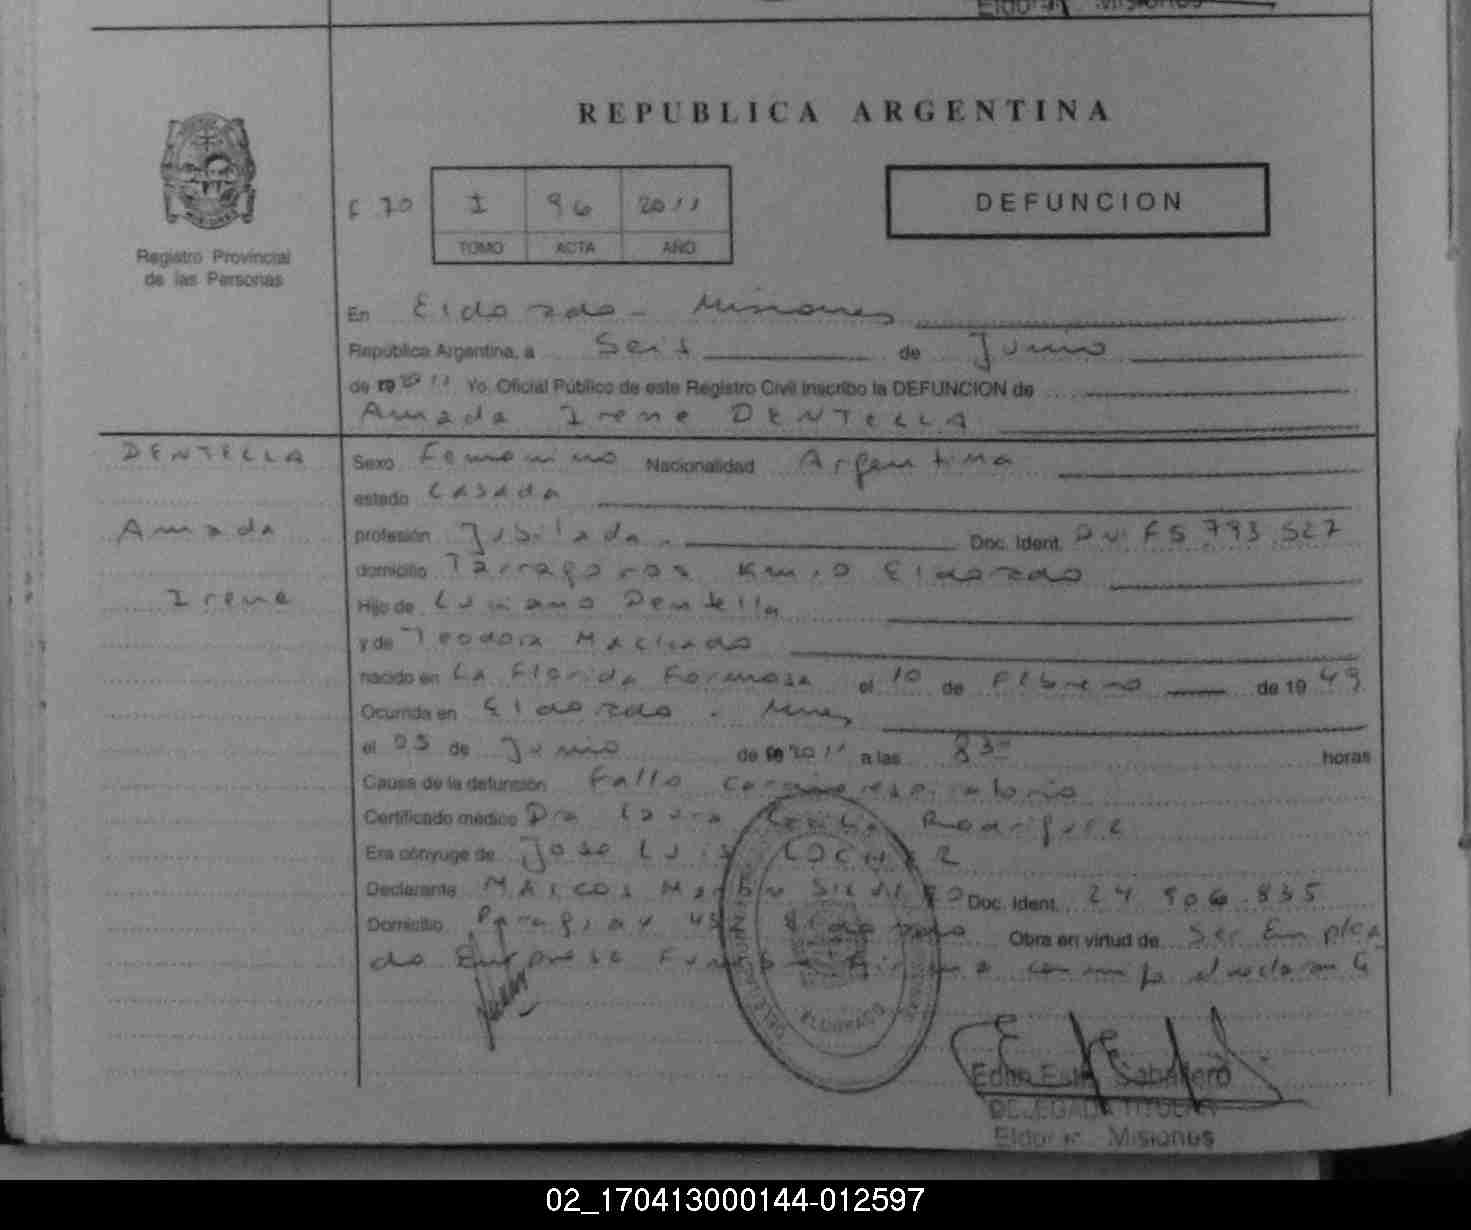 REPUBLICA ARGENTINA
Registro Provincial
de las Personas
F 70
I 96 2011
TOMO ACTA AÑO
DEFUNCION
En Eldorado - Misiones
República Argentina, a Seis de Junio
de 19 2011 Yo, Oficial Público de este Registro Civil inscribo la DEFUNCION de
Amada Irene DENTELLA
DENTELLA
Amada
Irene
Sexo Femenino Nacionalidad Argentina
estado Casada
profesión Jubilada. Doc. Ident. F5 793 527
domicilio Tarragoras Km 10 Eldorado
Hijo de Luciano Dentella
y de Teodora Machado
nacido en La Florida Formosa el 10 de Febrero de 19 49
Ocurrida en Eldorado - Mnes
el 05 de Junio de 19 2011 a las 8 30 horas
Causa de la defunción Fallo Cardiorespiratorio
Certificado médico Dra Laura Rodriguez
Era cónyuge de Jose Luis
Declarante Marcos Martin Doc. Ident. 24 906.835
Domicilio Paraguay Eldorado Obra en virtud de Ser Emplea
do Empresa conmigo el declarante
ELDORADO
Caballero
DELEGADA TITULAR
Eldorado Misiones
02_170413000144-012597